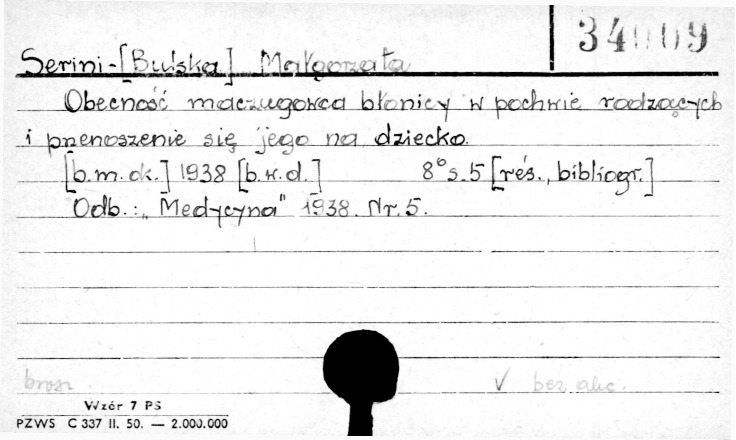 34009
Serini-[Bulska] Małgorzata
Obecność maczugowca błonicy w pochwie rodzących
i przenoszenie się jego na dziecko.
[b.m.dk.] 1938 [b.w.d.] 8° s.5 [rés., bibliogr.]
Odb.: "Medycyna" 1938. Nr. 5.
brosz. √ bez akc.
Wzór 7 PS
PZWS C 337 II. 50. — 2.000.000